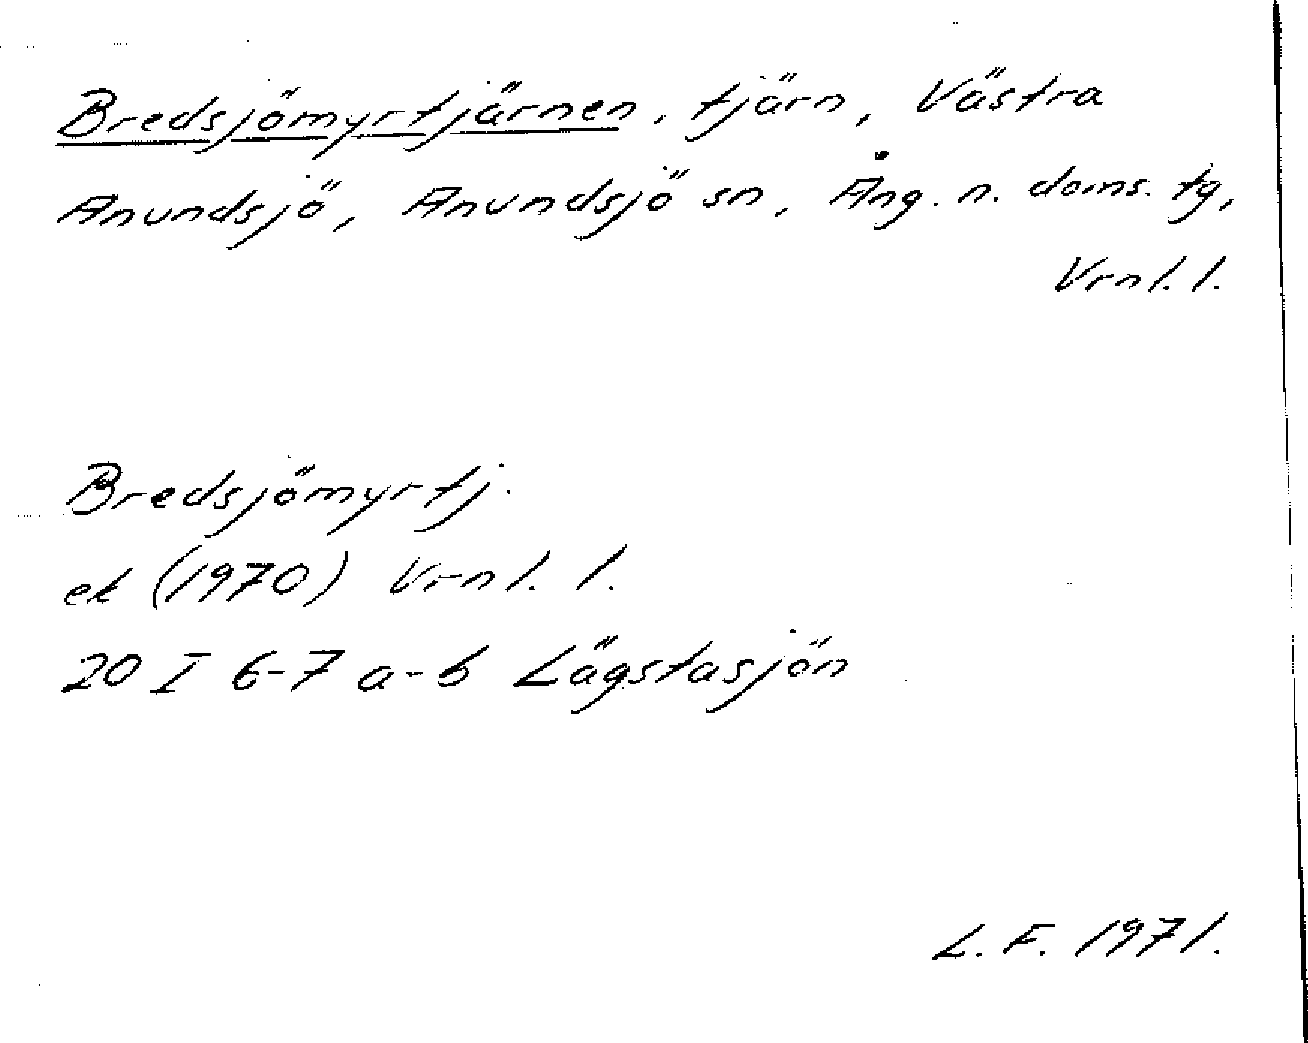 Bredsjömyrtjärnen, tjärn, Västra
Anundsjö, Anundsjö sn, Ång. n. doms. tg,
Vrnl. l.
Bredsjömyrtj.
ek (1970) Vrnl. l.
20 I 6-7 a-b Lägstasjön
L. F. 1971.